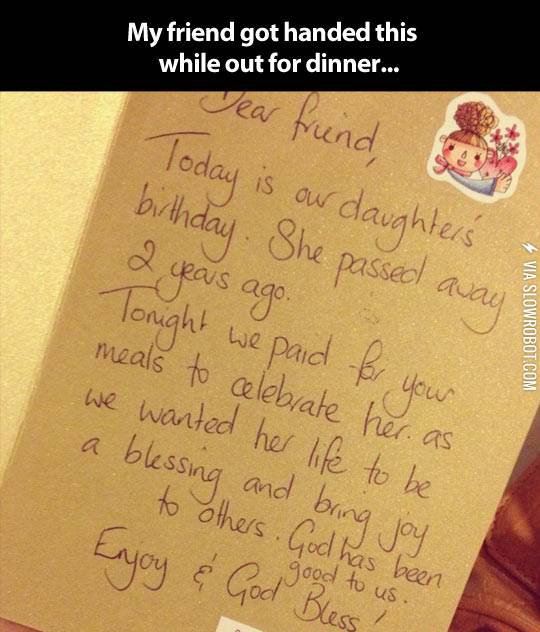 My friend got handed this
while out for dinner...
Dear friend,
Today is our daughters'
birthday. She passed away
2 years ago.
Tonight we paid for your
meals to celebrate her. as
we wanted her life to be
a blessing and bring joy
to others. God has been
good to us.
Enjoy & God Bless!
VIA SLOWROBOT.COM